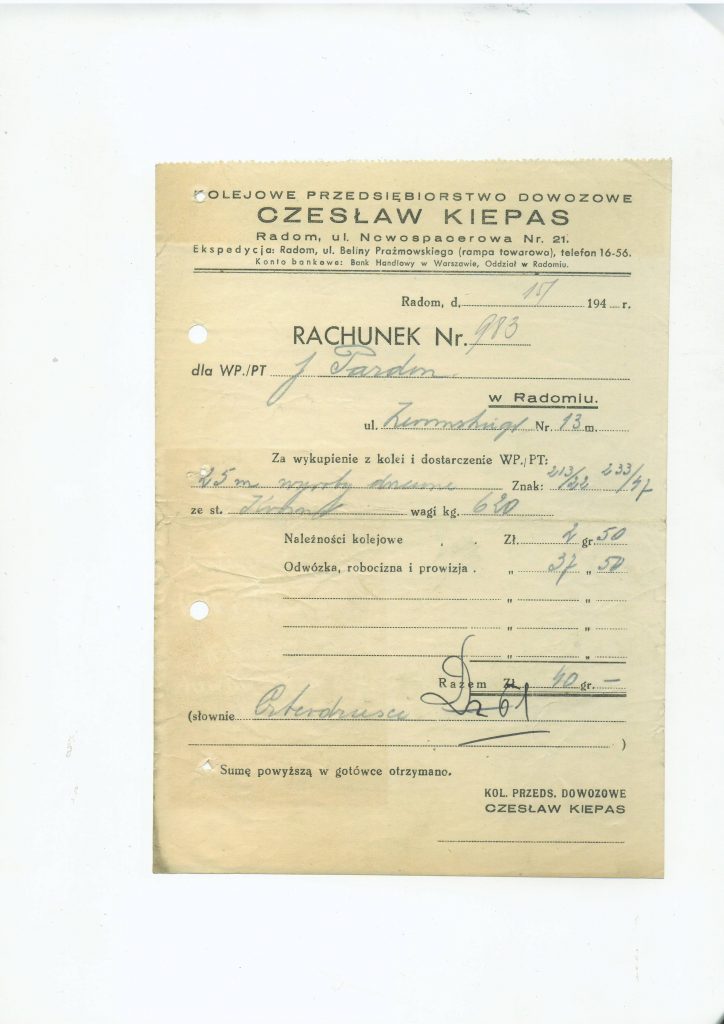 KOLEJOWE PRZEDSIĘBIORSTWO DOWOZOWE
CZESŁAW KIEPAS
Radom, ul. Nowospacerowa Nr. 21.
Ekspedycja: Radom, ul. Beliny Prażmowskiego (rampa towarowa), telefon 16-56.
Konto bankowe: Bank Handlowy w Warszawie, Oddział w Radomiu.
Radom, d. 15/ 194 r.
RACHUNEK Nr. 983
dla WP./PT J Pardon
w Radomiu.
ul. Nr. 13 m.
Za wykupienie z kolei i dostarczenie WP./PT:
25 m wyroby Znak: 213/22 233/47
ze st. wagi kg. 620
Należności kolejowe . . Zł. 2 gr. 50
Odwózka, robocizna i prowizja . „ 37 „ 50
„ „
„ „
„ „
Razem Zł. 40 gr. —
Dz 61
(słownie Czterdzieści
)
Sumę powyższą w gotówce otrzymano.
KOL. PRZEDS. DOWOZOWE
CZESŁAW KIEPAS